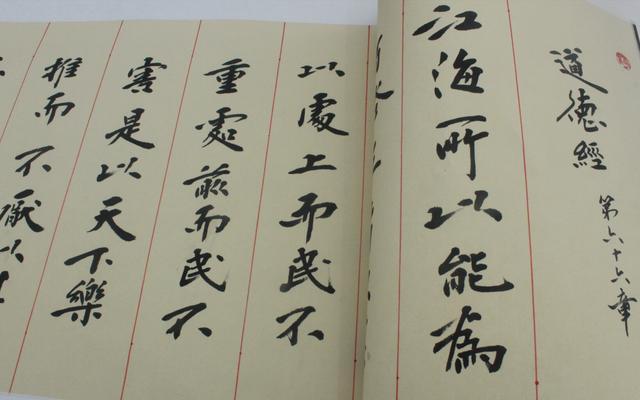 道德經
第六十六章
江海所以能為
以處上而民不
重處前而民不
害是以天下樂
推而不厭以